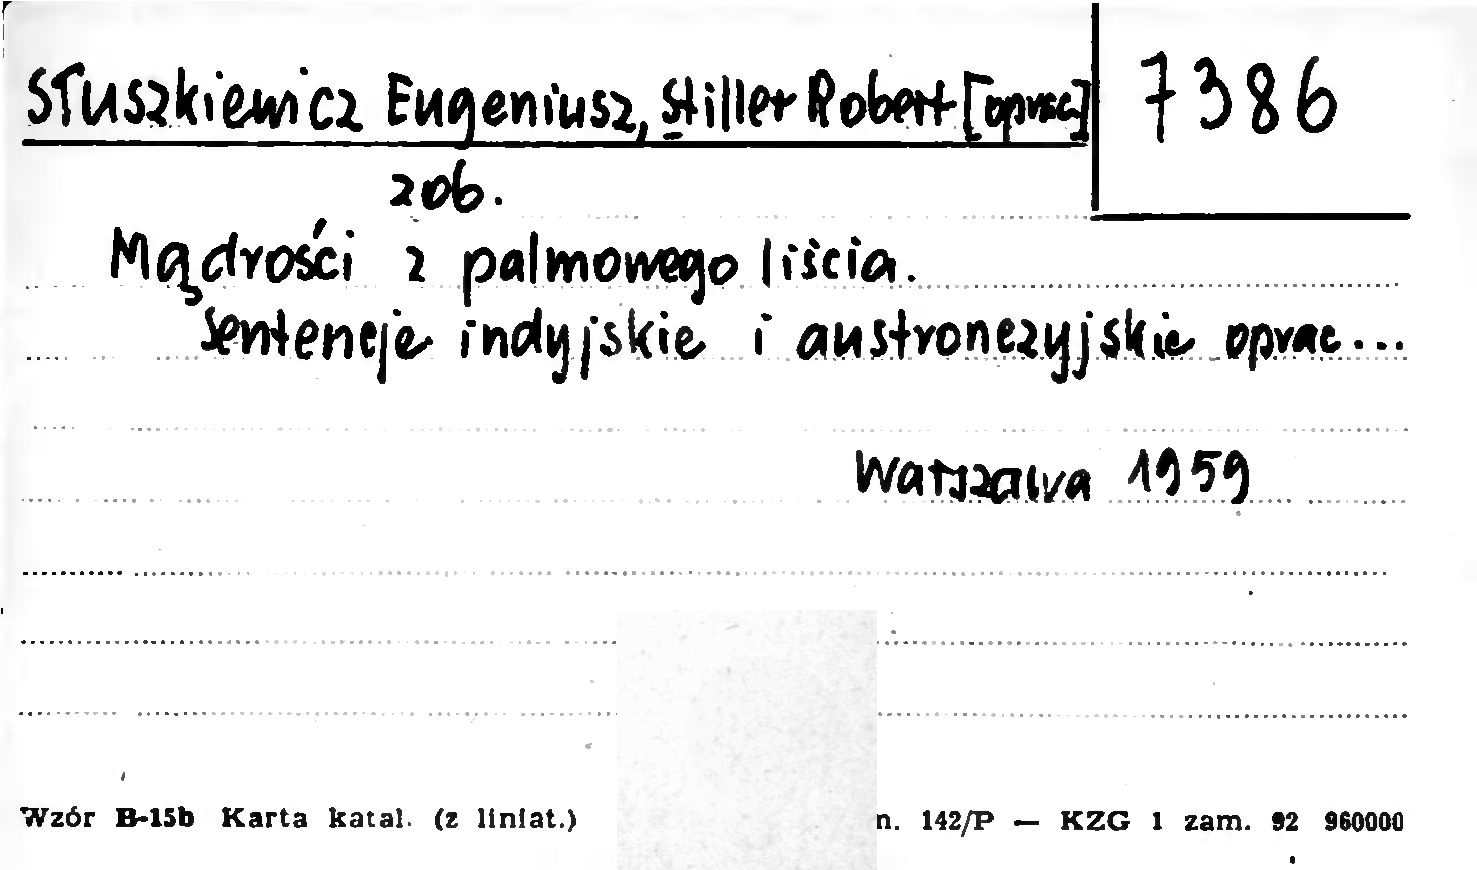 Słuszkiewicz Eugeniusz, Stiller Robert [oprac]
7386
zob.
Mądrości z palmowego liścia.
Sentencje indyjskie i austronezyjskie oprac...
Warszawa 1959
Wzór B-15b Karta katal. (z liniat.) n. 142/P — KZG 1 zam. 92 960000